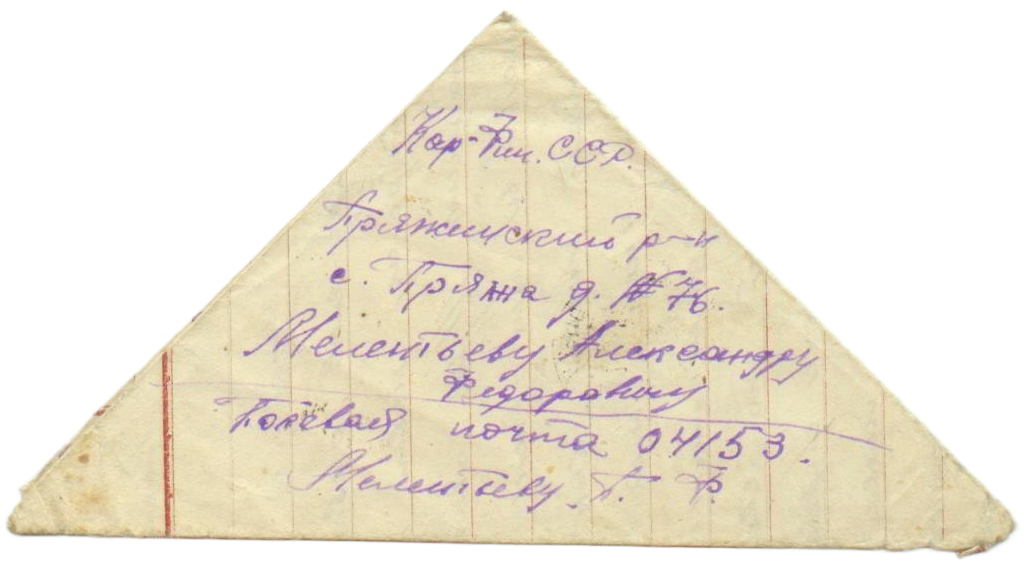 Кар-Фин. ССР.
Пряжинский р-н
с. Пряжа д. № 76.
Мелентьеву Александру
Федоровичу
Полевая почта 04153.
Мелентьеву П. Ф.